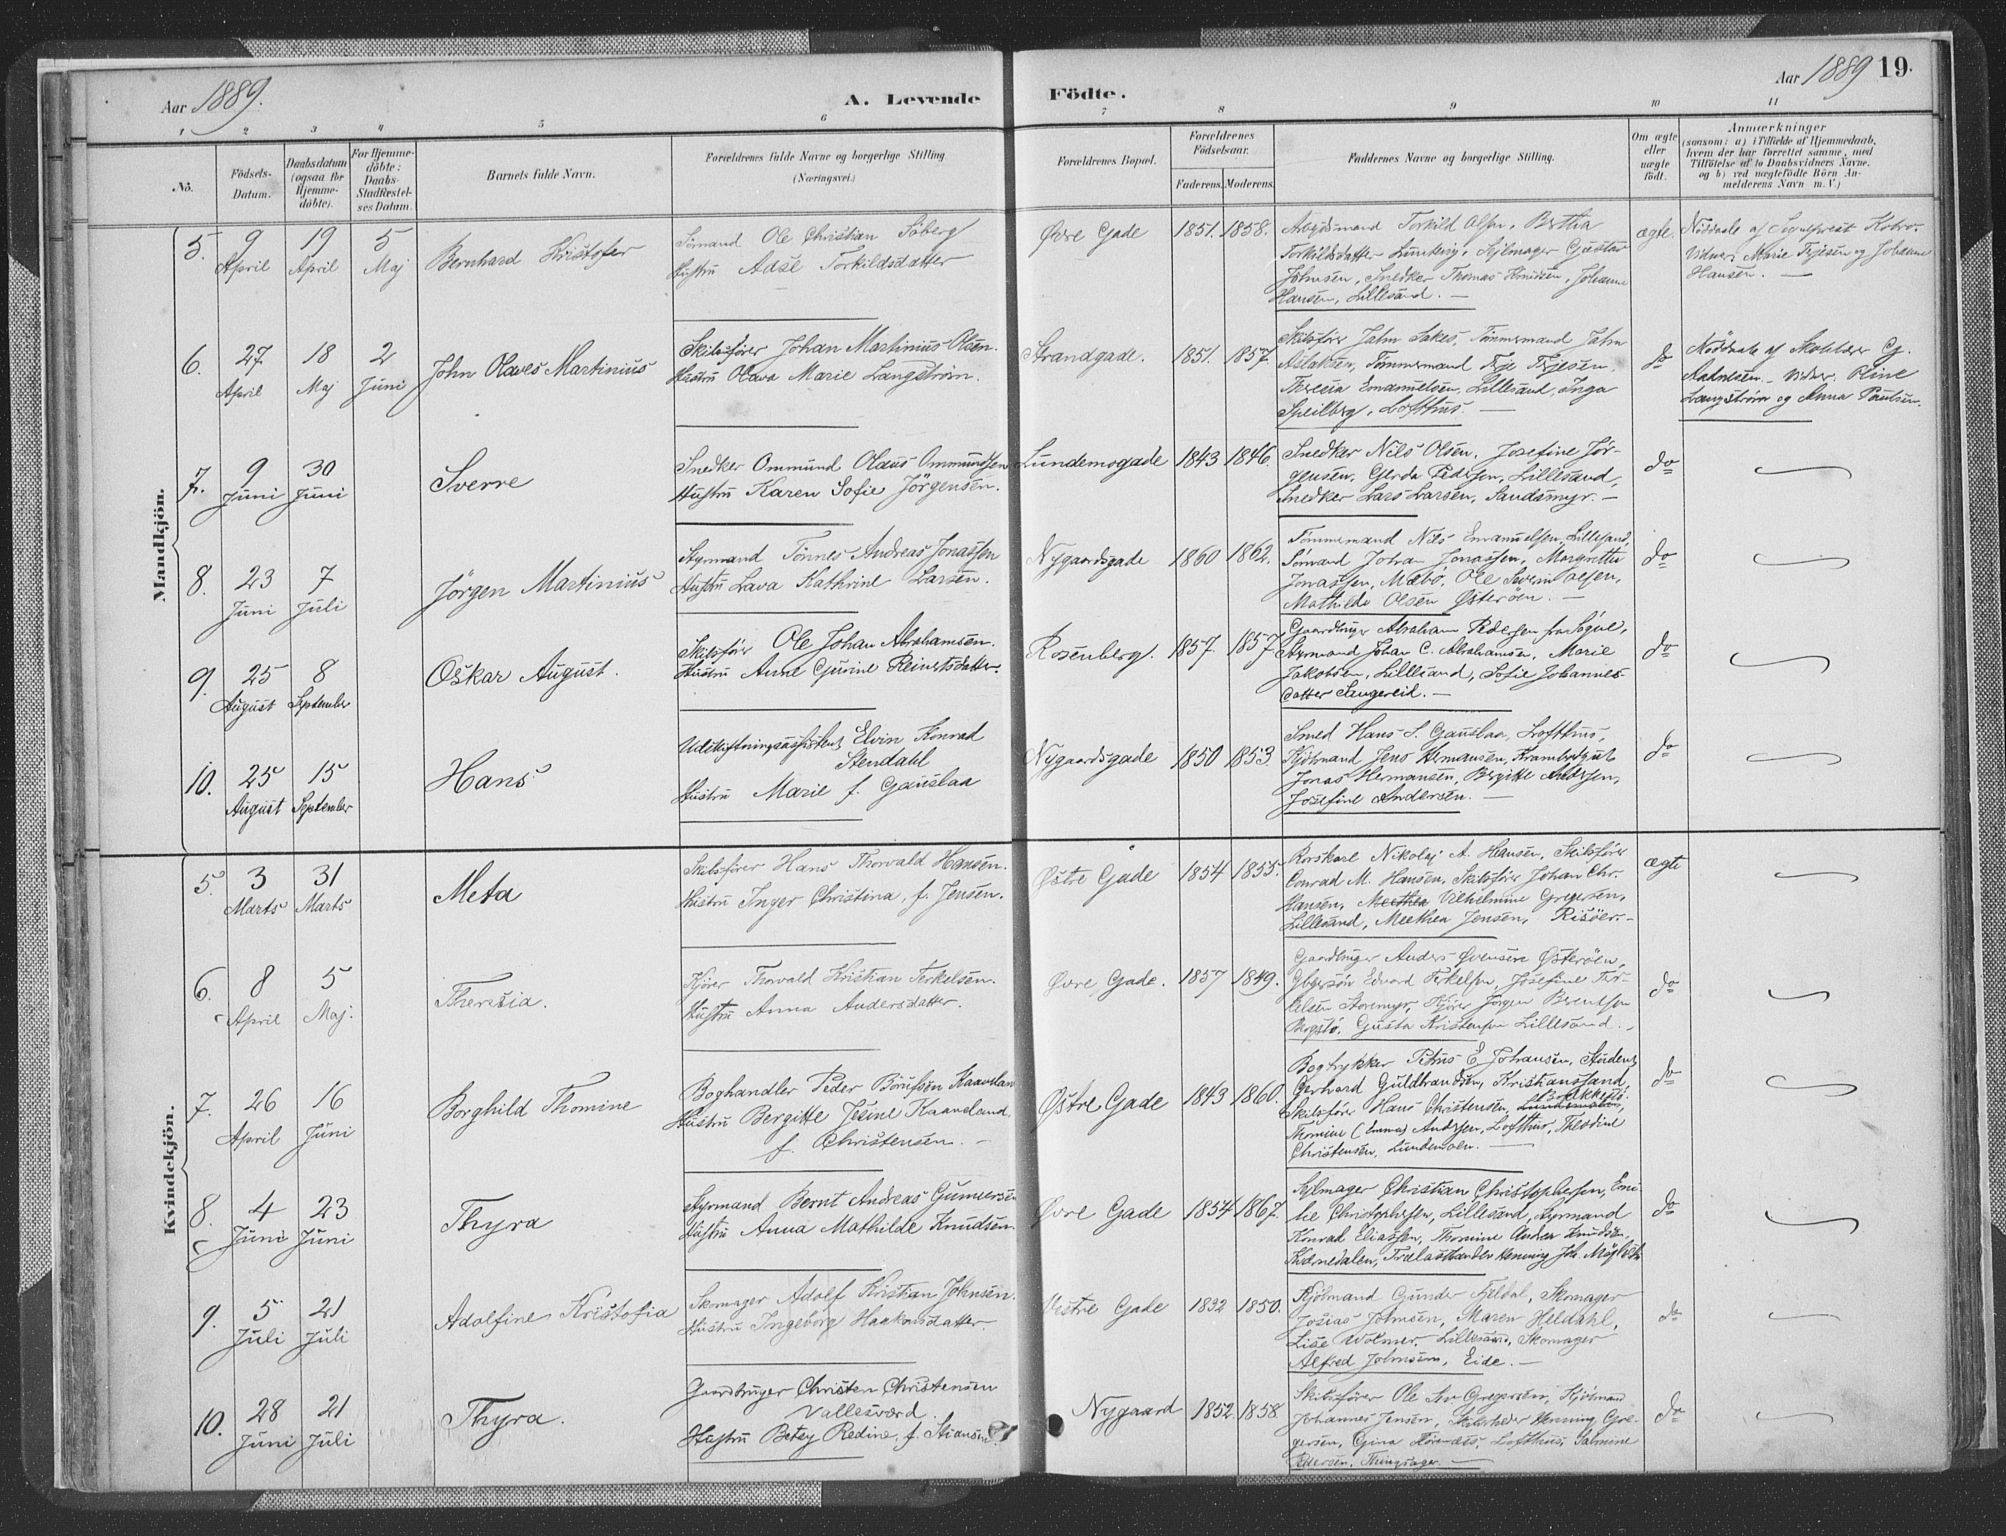 Aar 1889.
A. Levende Födte.
Aar 1889 19.
1 2 3 4 5 6 7 8 9 10 11
No.
Födsels-Datum.
Daabsdatum (ogsaa for Hjemme-döbte).
For Hjemme-döbte: Daabs-Stadfæstel-ses Datum.
Barnets fulde Navn.
Forældrenes fulde Navne og borgerlige Stilling (Næringsvei.)
Forældrenes Bopæl.
Forældrenes Födselsaar.
Faderens. Moderens.
Faddernes Navne og borgerlige Stilling.
Om ægte eller uægte födt.
Anmærkninger
(saasom: a) i Tilfælde af Hjemmedaab,
hvem der har forrettet samme, med
Tilföielse af to Daabsvidners Navne.
og b) ved uægtefödte Börn An-
melderens Navn m. V.)
Mandkjön.
5. 9 April 19 April 5 Maj
Bernhard Kristofer
Sømand Ole Christian Søberg
Hustru Adse Torkildsdatter
Øvre Gade 1851. 1858.
Arbejdsmand Torkild Olsen, Berthia
Torkildsdatter Lundberg, Sejlmager Gustav
Johnsen, Snedker Thomas Knudsen, Johanne
Hansen, Lillesand. —
ægte.
Nöddaab af
Vidner, Marie Terjesen og Johanne
Hansen. —
6. 27 April 18 Maj 2 Juni
John Olaves Martinius
Skibsfører Johan Martinius Olsen.
Hustru Olava Marie Langstrøm.
Strandgade. 1851. 1857.
Skibsfører John Sakes, Tømmermand John
Aslaksen, Tømmermand Terje Terjesen,
Theresia Emanuelsen, Lillesand, Inga
Speilberg, Lofthus. —
do
Nöddaab af
Vidner:
Langstrøm og Anna Paulsen.
7. 9 Juni 30 Juni
Sverre
Snedker Ommund Olaus Ommundsen
Hustru Karen Sofie Jörgensen.
Lundemogade 1843 1846.
Snedker Nils Olsen, Josefine Jør-
gensen, Gerda Pedersen, Lillesand,
Snedker Lars Larsen, Sandsmyr. —
do
8. 23 Juni 7 Juli
Jörgen Martinius
Styrmand Tönnes Andreas Jonassen
Hustru Lava Kathrine Larsen.
Nygaardsgade 1860 1862.
Tømmermand Nils Emanuelsen, Lillesand,
Sømand Johan Jonassen, Margrethe
Jonassen, Mæbø, Ole Svenn Olsen,
Mathilde Olsen Østerøen. —
do
9. 25 August 8 September
Oskar August.
Skibsfører Ole Johan Abrahamsen.
Hustru Anne Gusine Reinertsdatter.
Rosenberg. 1857. 1857
Gaardbruger Abraham Pedersen fra Søgne,
Styrmand Johan C. Abrahamsen, Marie
Jakobsen, Lillesand, Sofie Johannes-
datter Sangereid. —
do
10. 25 August 15 September
Hans
Udskiftningsassistent Elvin Konrad
Stendahl
Hustru Marie f. Gauslaa
Nygaardsgade 1850 1853.
Smed Hans S. Gauslaa, Lofthus,
Kjøbmand Jens Hermansen, Krambodgut
Jonas Hermansen, Bergitte Andersen,
Josefine Andersen. —
do
Kvindekjön.
5. 3 Marts 31 Marts
Meta
Skibsfører Hans Thorvald Hansen.
Hustru Inger Christina, f. Jensen.
Østre Gade 1854 1855.
Rorskarl Nikolaj A. Hansen, Skibsfører
Conrad M. Hansen, Skibsfører Johan Chr.
Hansen, Vilhelmine Gregersen,
Lillesand, Methea Jensen, Risøer. —
ægte
6. 8 April 5 Maj.
Theresia.
Kjører Thorvald Kristian Terkelsen.
Hustru Anna Andersdatter.
Øvre Gade. 1857 1849.
Gaardbruger Anders Svensen Østerøen,
Edvard Terkelsen, Josefine Ter-
kelsen Storemyr, Kjører Jørgen Berentsen
Bergstø, Gusta Kristensen Lillesand. —
do
7. 26 April 16 Juni
Borghild Thomine
Boghandler Peder Børufsen Kaaveland
Hustru Bergitte Jesine Kaaveland
f. Christensen. —
Østre Gade 1843 1860.
Bogtrykker Petrus E. Johansen, Student
Gerhard Guldbrandsen, Kristianssand,
Skibsfører Hans Christensen, Brækkestø.
Thomine (Emma) Andersen, Lofthus, Theodine
Christensen, Lundemoen. —
do
8. 4 Juni 23 Juni
Thyra
Styrmand Bernt Andreas Gunnersen
Hustru Anna Mathilde Knudsen.
Øvre Gade 1854 1867.
Sejlmager Christian Christophersen, Emi-
lie Christophersen, Lillesand, Styrmand
Konrad Eliassen, Thomine Andrea Knudsen,
Kvernedalen, Trælasthandler Henning Joh. Møglestu
do
9. 5 Juli 21 Juli
Adolfine Kristofia
Skomager Adolf Kristian Johnsen.
Hustru Ingeborg Haakonsdatter
Vestre Gade 1832 1850.
Kjøbmand Gunder Fjeldal, Skomager
Josias Johnsen, Maren Heldahl,
Lise Wolmer, Lillesand, Skomager
Alfred Johnsen, Eide. —
do
10. 28 Juni 21 Juli
Thyra.
Gaardbruger Christen Christensen
Vallesværd.
Hustru Betzy Redine, f. Stiansen.
Nygaard 1852. 1858
Skibsfører Ole Gregersen, Kjøbmand
Johannes Jensen, Skibsreder Henning Gre-
gersen, Gina Lofthus, Salmine
Pettersen, Thingsager —
do